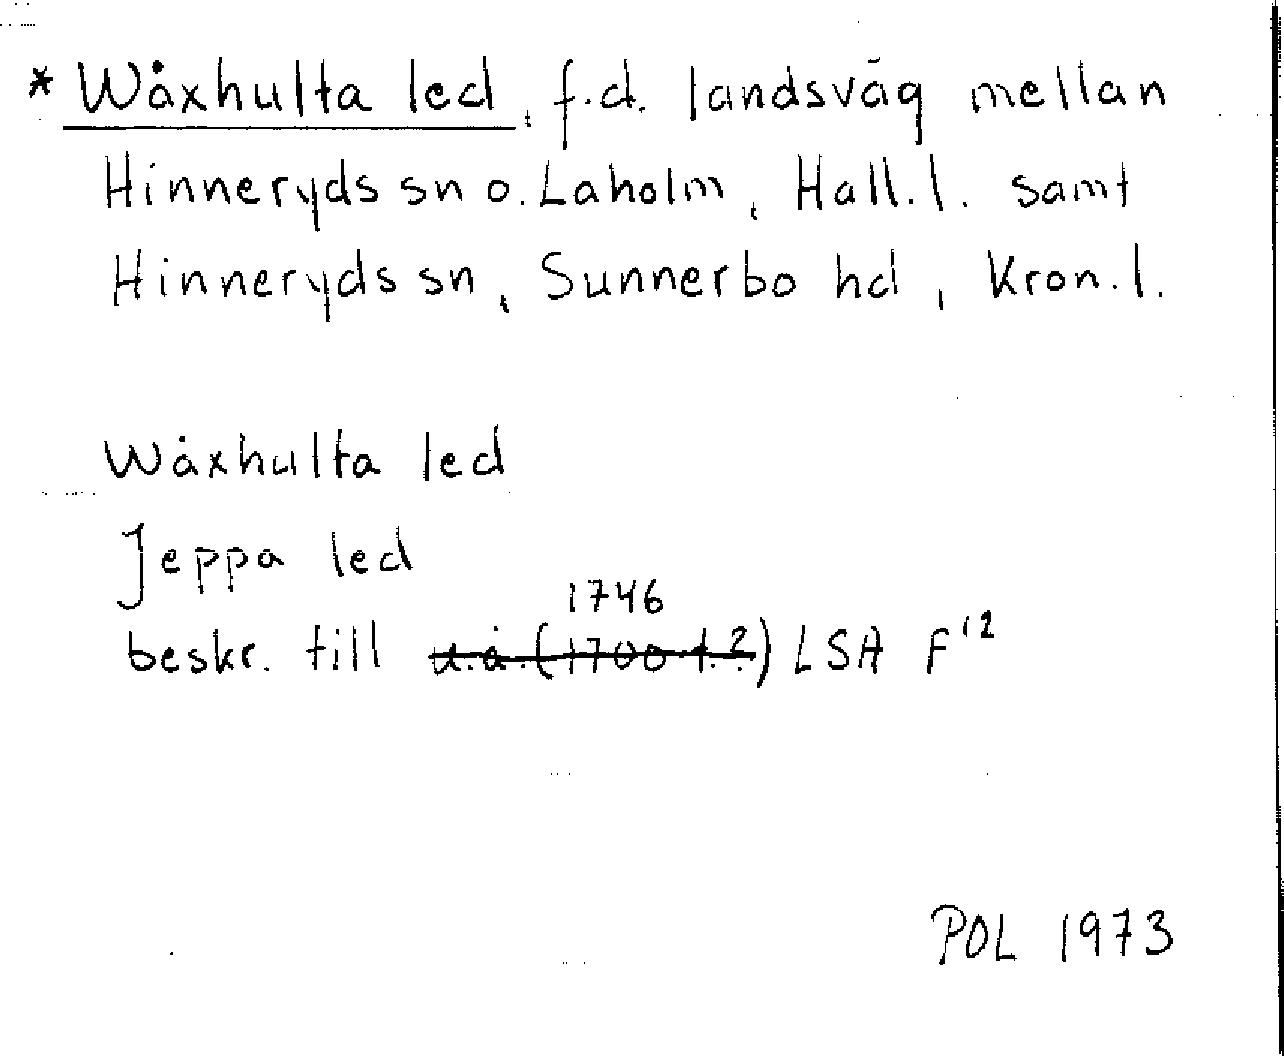 * Wåxhulta led, f.d. landsväg mellan
Hinneryds sn o. Laholm, Hall. l. samt
Hinneryds sn, Sunnerbo hd, Kron. l.
Wåxhulta led
Jeppa led
1746
beskr. till u.å. (1700-t.?) LSA F12
POL 1973